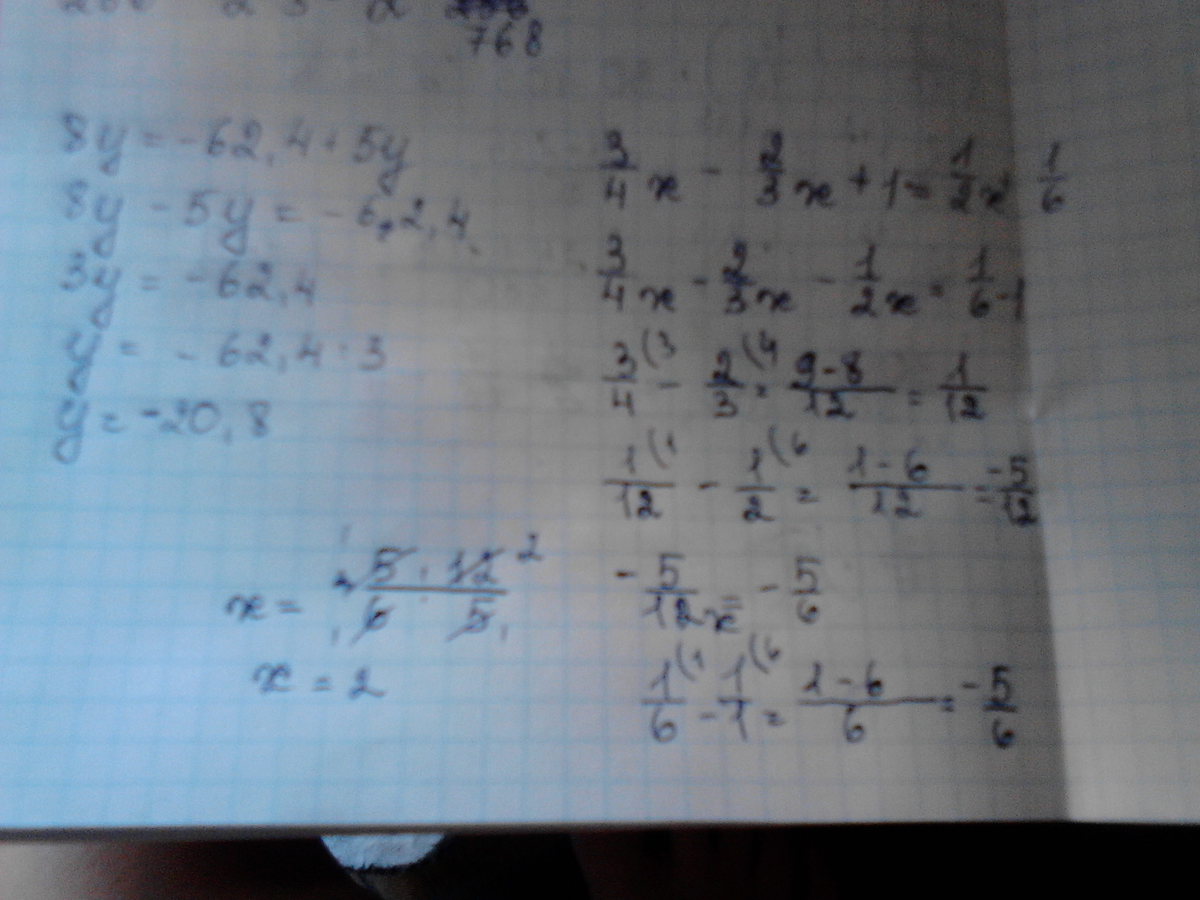 768
8y = -62,4 + 5y
8y - 5y = -62,4
3y = -62,4
y = -62,4 : 3
y = -20,8
3/4 x - 2/3 x + 1 = 1/2 x 1/6
3/4 x - 2/3 x - 1/2 x = 1/6 - 1
3/4 (3 - 2/3 (4 = 9-8/12 = 1/12
1/12 (1 - 1/2 (6 = 1-6/12 = -5/12
-5/12 x = -5/6
1/6 (1 - 1/1 (6 = 1-6/6 = -5/6
x = 5 · 12 2/6 · 5
x = 2